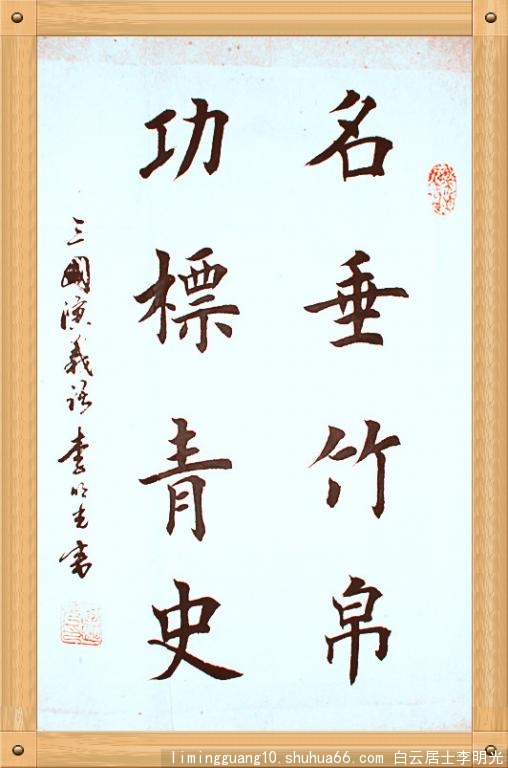 名垂竹帛
功標青史
三國演義語 李明光書
limingguang10.shuhua66.com 白云居士李明光